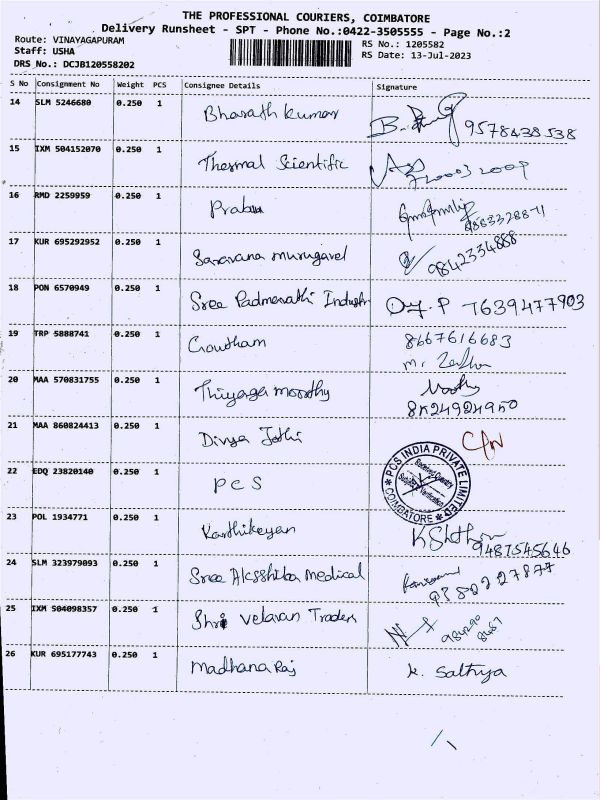 THE PROFESSIONAL COURIERS, COIMBATORE
Delivery Runsheet - SPT - Phone No.:0422-3505555 - Page No.:2
Route: VINAYAGAPURAM
RS No.: 1205582
Staff: USHA
RS Date: 13-Jul-2023
DRS No.: DCJB120558202
S No Consignment No Weight PCS Consignee Details Signature
14 SLM 5246680 0.250 1 Bharath kumar 9578438538
15 IXM 504152070 0.250 1 Thermal Scientific
16 RMD 2259959 0.250 1 Prabu
17 KUR 695292952 0.250 1 Saravana murugavel 9842334888
18 PON 6570949 0.250 1 Sree Padmavathi Industry 7639477903
19 TRP 5888741 0.250 1 Goutham 8667616683
20 MAA 570831755 0.250 1 Thiyaga moorthy
21 MAA 860824413 0.250 1 Divya Jothi
22 EDQ 23820140 0.250 1 PCS
PCS INDIA PRIVATE LIMITED
COIMBATORE
23 POL 1934771 0.250 1 Karthikeyan 9487545646
24 SLM 323979093 0.250 1 Sree Medical
25 IXM 504098357 0.250 1 Shri velavan Traders
26 KUR 695177743 0.250 1 Madhana Raj k. Sathya